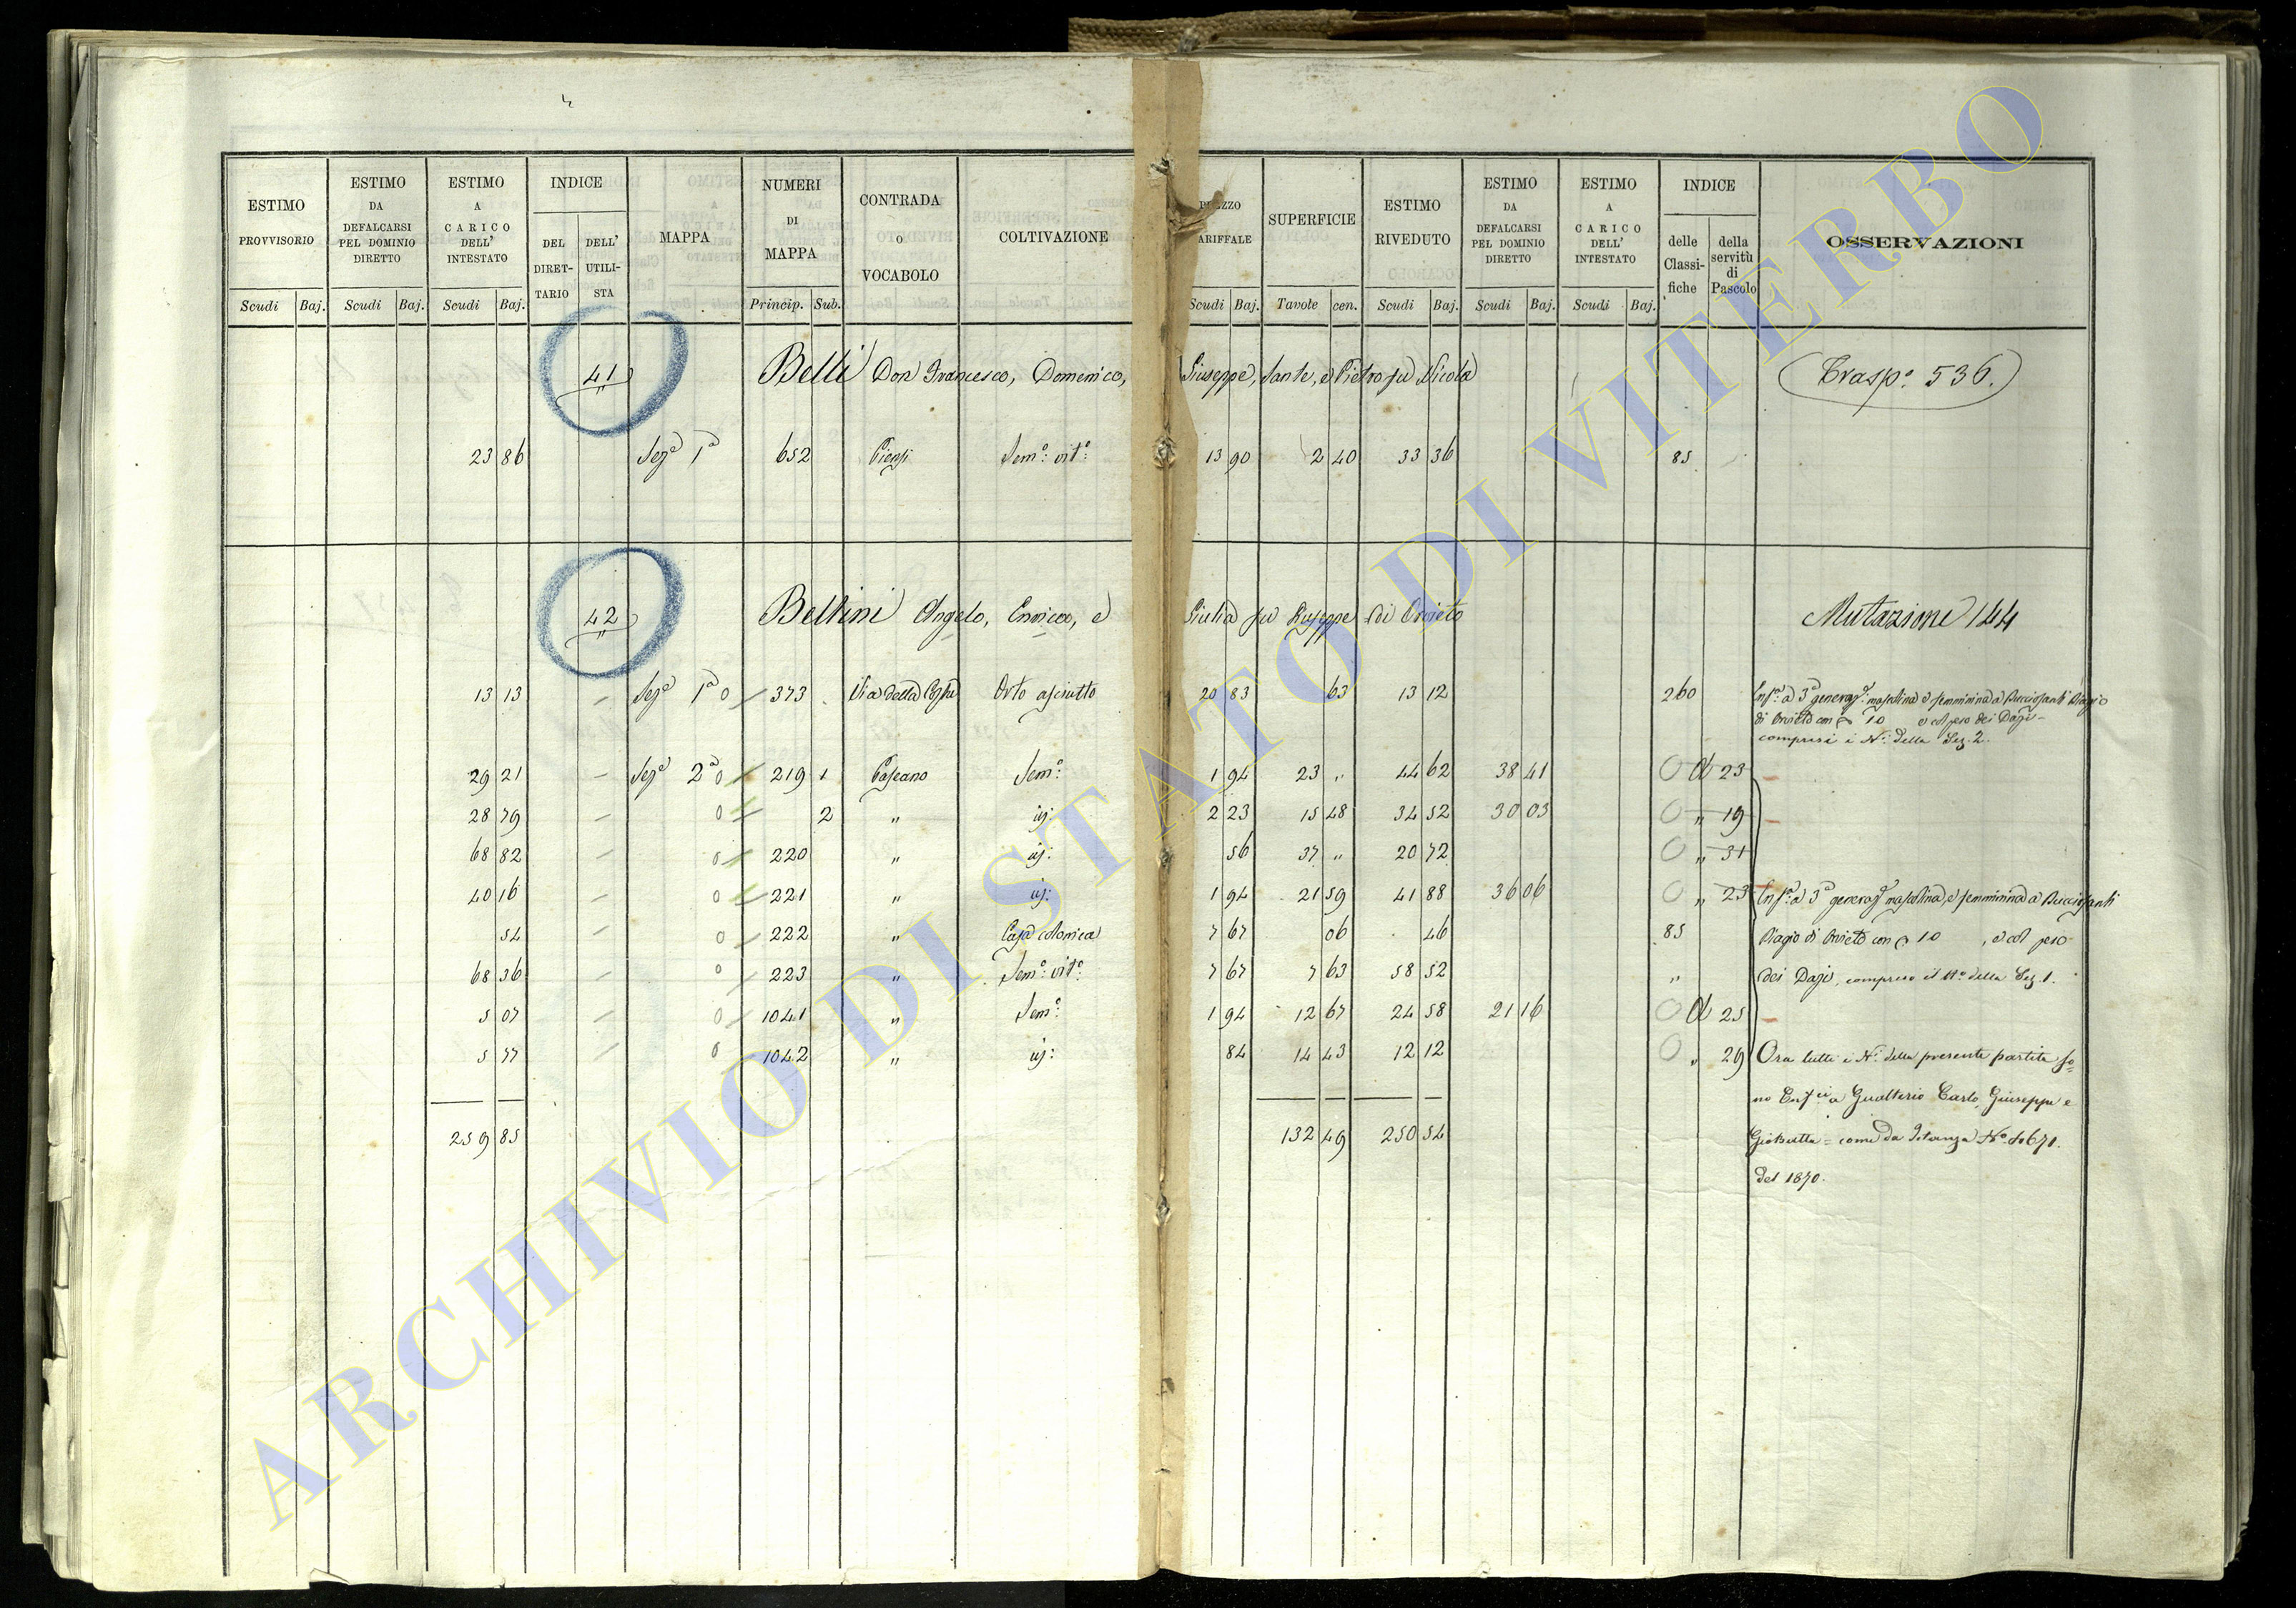 ESTIMO PROVVISORIO Scudi Baj.
ESTIMO DA DEFALCARSI PEL DOMINIO DIRETTO Scudi Baj.
ESTIMO A CARICO DELL' INTESTATO Scudi Baj.
INDICE DEL DIRET-TARIO DELL' UTILI-STA
MAPPA
NUMERI DI MAPPA Princip. Sub.
CONTRADA o VOCABOLO
COLTIVAZIONE
TARIFFALE Scudi Baj.
SUPERFICIE Tavole cen.
ESTIMO RIVEDUTO Scudi Baj.
ESTIMO DA DEFALCARSI PEL DOMINIO DIRETTO Scudi Baj.
ESTIMO A CARICO DELL' INTESTATO Scudi Baj.
INDICE delle Classi-fiche della servitù di Pascolo
OSSERVAZIONI
41 Belli Don Francesco, Domenico, Giuseppe, Sante, e Pietro fu Nicola (Trasp.o 536.)
23 86 Sez.e 1a 652 Sem.o vit.o 13 90 2 40 33 36 85
42 Bellini Angelo, Enrico, e Giulia fu Giuseppe di Orvieto Mutazione 144
13 13 Sez.e 1a 0 373 Via della Orto asciutto 20 83 63 13 12 260
Enf.a a 3a generaz.e mascolina e femminina a Bucciosanti Biagio
di Orvieto con 10 e col peso dei Dazi
compresi i N.i della Sez. 2.
29 21 Sez.e 2a 0 219 1 Pascano Sem.o 1 94 23 " 44 62 38 41 0 a 23
28 79 0 2 " id: 2 23 15 48 34 52 30 03 0 " 19
68 82 0 220 " id: 56 37 " 20 72 0 " 31
40 16 0 221 " id: 1 94 21 59 41 88 36 06 0 " 23 Enf.a a 3a generaz.e mascolina, e femminina a Bucciosanti
54 0 222 " Casa colonica 7 67 06 46 85 Biagio di Orvieto con 10 , e col peso
68 36 0 223 " Sem.o vit.o 7 67 7 63 58 52 " dei Dazi, compreso il N.o della Sez. 1.
5 07 0 1041 " Sem.o 1 94 12 67 24 58 21 16 0 a 25
5 77 0 1042 " id: 84 14 43 12 12 0 " 29 Ora tutti i N.i della presente partita so=
no Enf.ci a Gualterio Carlo, Giuseppe e
259 85 132 49 250 54 come da Istanza N.o
del 1870.
ARCHIVIO DI STATO DI VITERBO